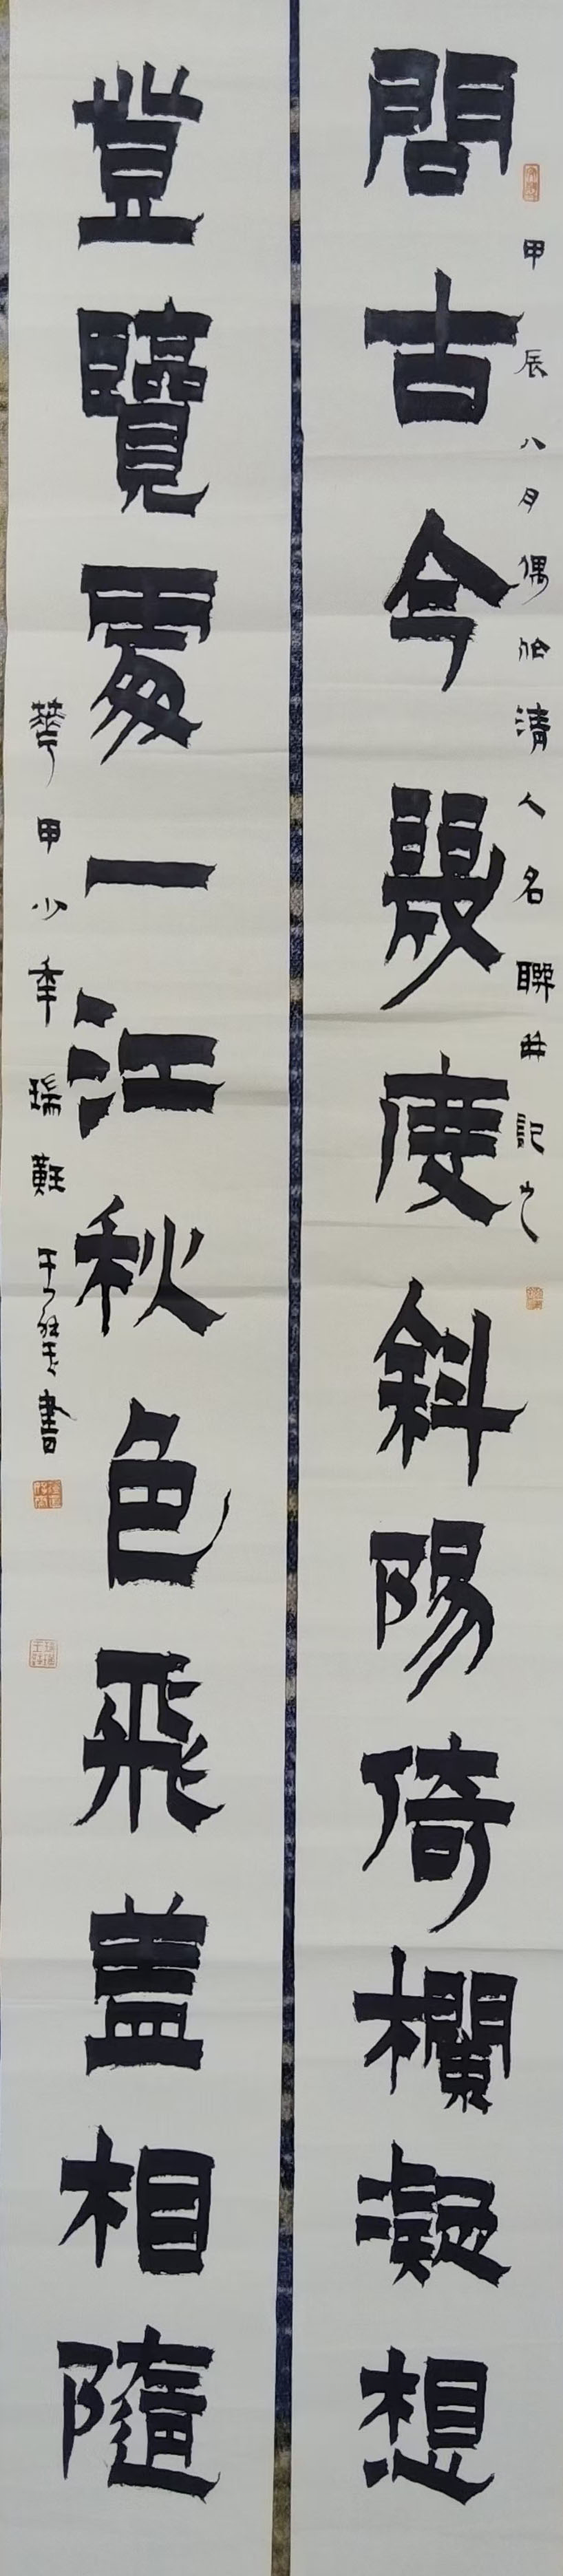 問古今幾度斜陽倚欄凝想
甲辰八月偶作清人名聯并記之
登覽處一江秋色飛盖相隨
華甲少年瑞 書